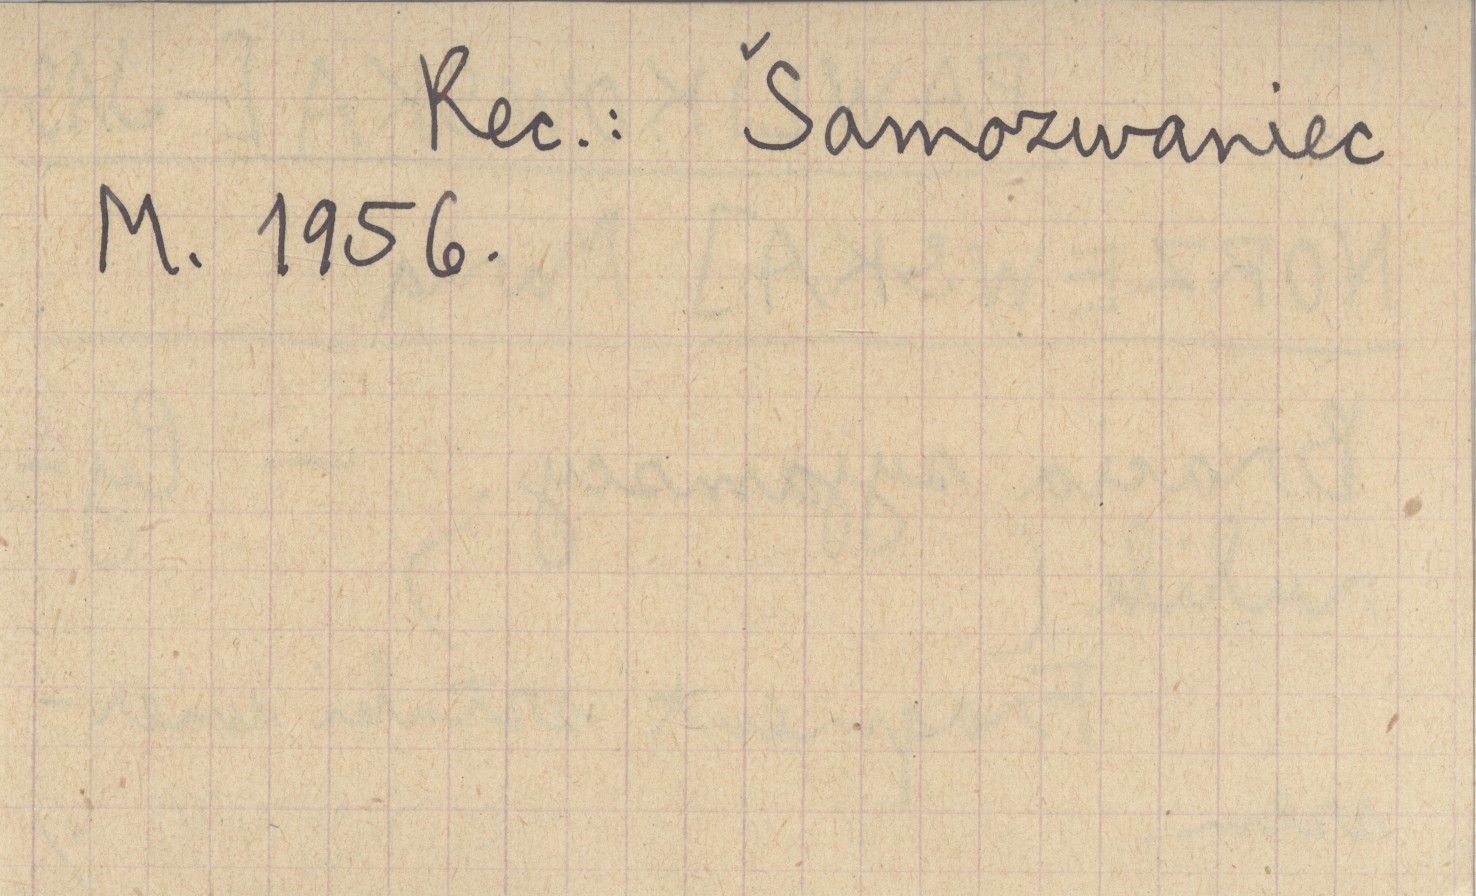 Rec.: Samozwaniec
M. 1956.